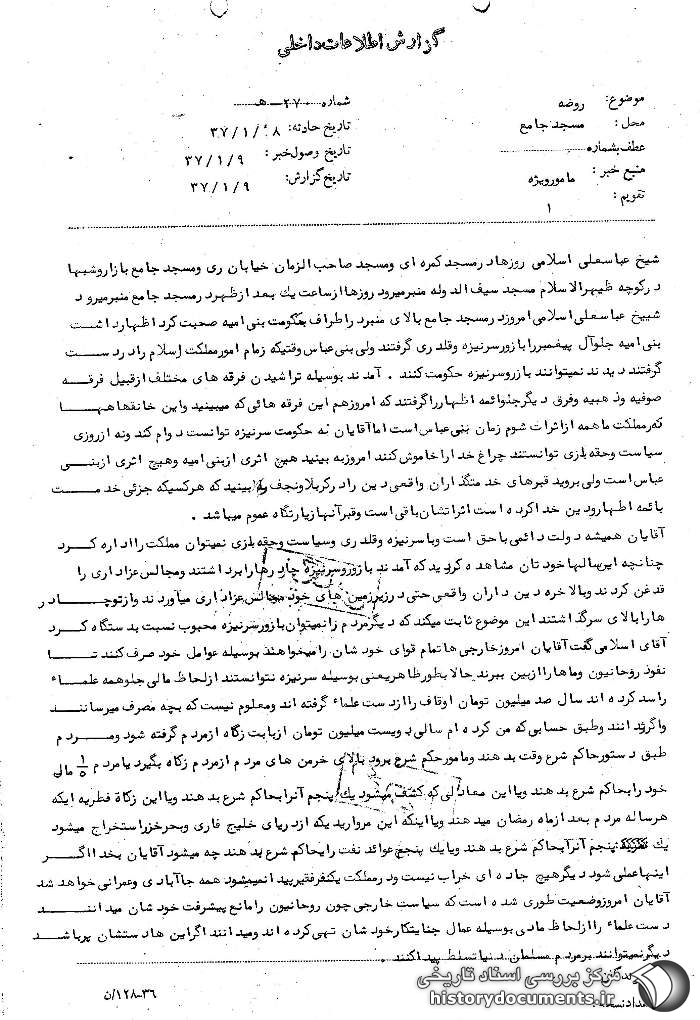 گزارش اطلاعات داخلی
موضوع: روضه
شماره ۲۰۷۰۰ هـ
محل: مسجد جامع
تاریخ حادثه: ۳۷/۱/۸
عطف بشماره
تاریخ وصول خبر: ۳۷/۱/۹
منبع خبر: مامور ویژه
تاریخ گزارش: ۳۷/۱/۹
تقویم:
۱
شیخ عباسعلی اسلامی روزها در مسجد کمره ای ومسجد صاحب الزمان خیابان ری ومسجد جامع بازار وشبها
در کوچه ظهیرالاسلام مسجد سیف الدوله منبر میرود روزها از ساعت یك بعد از ظهر در مسجد جامع منبر میرود
شیخ عباسعلی اسلامی امروز در مسجد جامع بالای منبر در اطراف حکومت بنی امیه صحبت کرد اظهار داشت
بنی امیه جلو آل پیغمبر را با زور سرنیزه وقلدری گرفتند ولی بنی عباس وقتیکه زمام امور مملکت اسلام را در دست
گرفتند دیدند نمیتوانند با زور سرنیزه حکومت کنند . آمدند بوسیله تراشیدن فرقه های مختلف از قبیل فرقه
صوفیه وذهبیه وفرق دیگر جلو ائمه اطهار را گرفتند که امروز هم این فرقه هائی که میبینید واین خانقاهها
که در مملکت ما همه از اثرات شوم زمان بنی عباس است اما آقایان نه حکومت سرنیزه توانست دوام کند ونه از روزی
سیاست وحقه بازی توانستند چراغ خدا را خاموش کنند امروز به بینید هیچ اثری از بنی امیه وهیچ اثری از بنی
عباس است ولی بروید قبرهای خدمتگذاران واقعی دین را در کربلا ونجف به بینید که هرکسیکه جزئی خدمت
بائمه اطهار ودین خدا کرده است اثراتشان باقی است وقبر آنها زیارتگاه عموم میباشد .
آقایان همیشه دولت دائمی باحق است وبا سرنیزه وقلدری وسیاست وحقه بازی نمیتوان مملکت را اداره کرد
چنانچه این سالها خودتان مشاهده کردید که آمدند با زور وسرنیزه چادرها را برداشتند ومجالس عزاداری را
قدغن کردند وبالاخره دین داران واقعی حتی در زیرزمین های خود مجالس عزاداری میآوردند وازتو چادر
ها را بالای سر گذاشتند این موضوع ثابت میکند که دیگر مردم را نمیتوان با زور سرنیزه محبوب نسبت بدستگاه کرد
آقای اسلامی گفت آقایان امروز خارجی ها تمام قوای خودشان را میخواهند بوسیله عوامل خود صرف کنند تا
نفوذ روحانیون وماها را از بین ببرند حالا بطور ظاهر یعنی بوسیله سرنیزه نتوانستند از لحاظ مالی جلو همه علماء
را سد کرده اند سال صد میلیون تومان اوقاف را از دست علماء گرفته اند ومعلوم نیست که بچه مصرف میرسانند
واگر بدانند وطبق حسابی که من کرده ام سالی دویست میلیون تومان از بابت زکاه از مردم گرفته شود ومردم
طبق دستور حاکم شرع وقت بدهند ومامور حکم شرع برود بالای خرمن های مردم از مردم زکاه بگیرد یا مردم ۱/۵ مالی
خود را بحاکم شرع بدهند ویا این معادلی که کشف میشود یك پنجم آنرا بحاکم شرع بدهند ویا این زکاة فطریه ایکه
هرساله مردم بعد از ماه رمضان میدهند ویا اینکه این مرواریدیکه از دریای خلیج فارس وبحر خزر استخراج میشود
یك پنجم آنرا بحاکم شرع بدهند ویا یك پنجم عوائد نفت را بحاکم شرع بدهند چه میشود آقایان بخدا اگر
اینها عملی شود دیگر هیچ جاده ای خراب نیست ودر مملکت یکنفر فقیر پیدا نمیشود همه جا آبادی وعمرانی خواهد شد
آقایان امروز وضعیت طوری شده است که سیاست خارجی چون روحانیون را مانع پیشرفت خودشان میدانند
دست علماء را از لحاظ مادی بوسیله عمال جنایتکار خودشان تهی کرده اند ومیدانند اگر این ها دستشان پر باشد
دیگر نمیتوانند بر مردم مسلمان دنیا تسلط پیدا کنند .
مرکز بررسی اسناد تاریخی
historydocuments.ir
تعداد نسخه:
۱۲۸-۳۶/ن